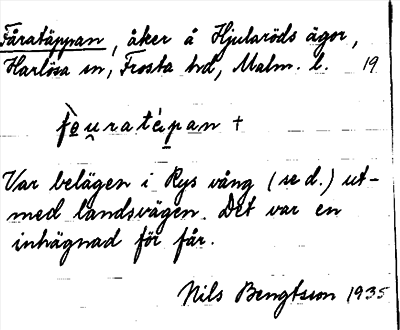 Fåratäppan, åker å Hjularöds ägor,
Harlösa sn, Frosta hd, Malm. l. 19
fo̠u̯ratépan +
Var belägen i Rys vång (se d.) ut-
med landsvägen. Det var en
inhägnad för får.
Nils Bengtsson 1935